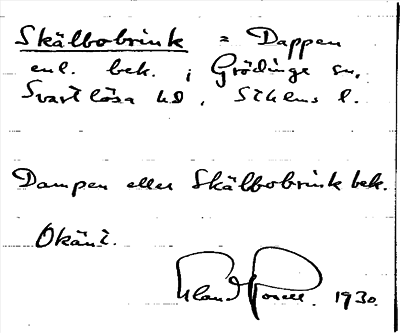 Skälbobrink = Dappen
enl. bek. i Grödinge sn,
Svartlösa hd, Sthlms l.
Dampen eller Skälbobrink bek.
Okänt.
1930.